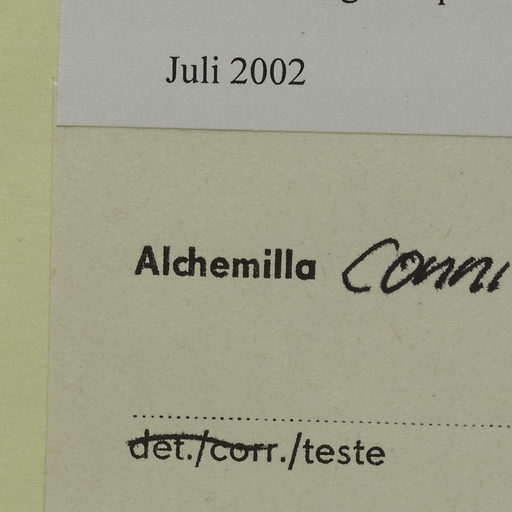 Juli 2002
Alchemilla Conni
det./corr./teste